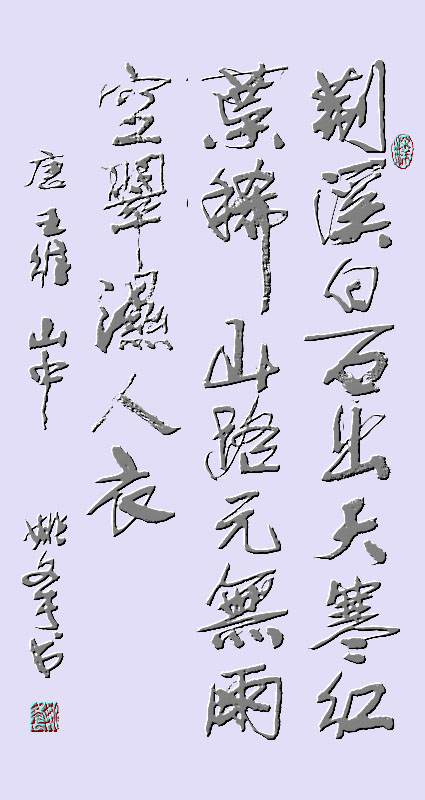 荆溪白石出天寒红
葉稀山路元無雨
空翠濕人衣
唐 王維 山中 姚 书